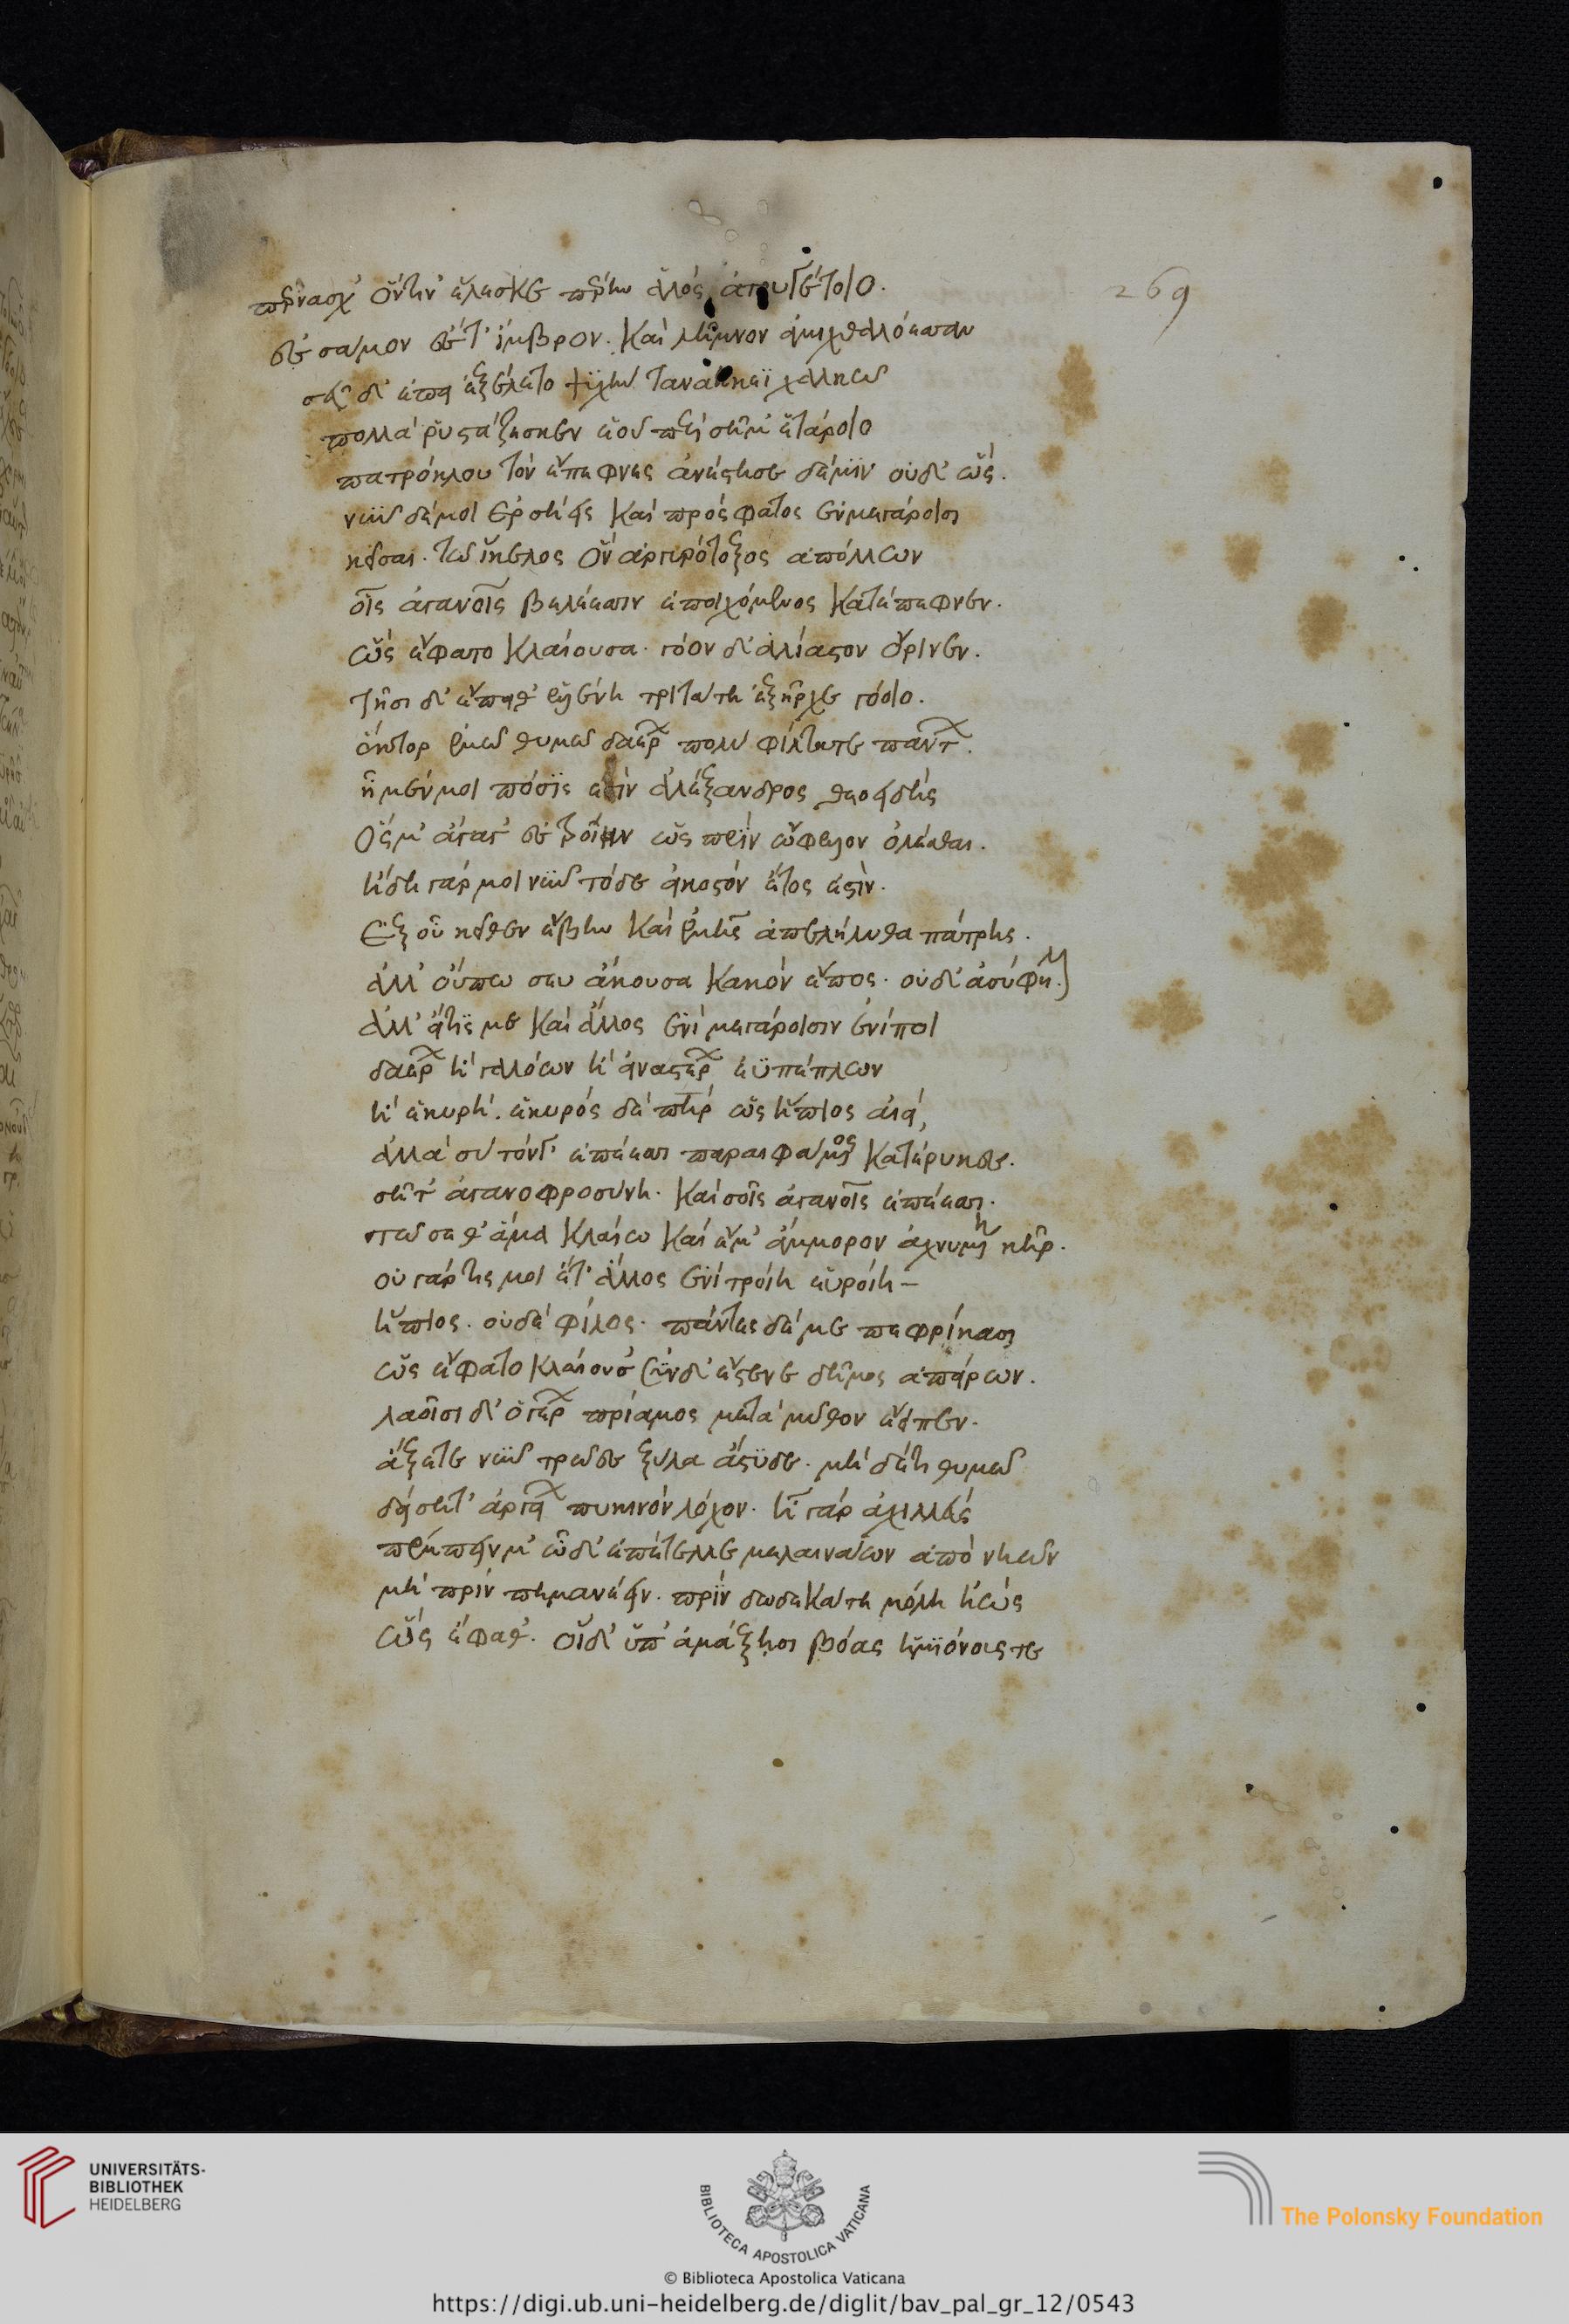 πέρνασχ' ὅντιν' ἕλεσκε πέρην ἁλὸς ἀτρυγέτοιο.
ἐς σάμον ἔς τ' ἴμβρον. καὶ λῆμνον ἀμιχθαλόεσσαν
σεῦ δ' ἐπεὶ ἐξέλετο ψυχὴν ταναήκεϊ χαλκῶ
πολλὰ ῥυστάζεσκεν ἑοῦ περὶ σῆμ' ἑτάροιο
πατρόκλου τὸν ἔπεφνες ἀνέστησε δέ μιν οὐδ' ὥς.
νῦν δέ μοι ἑρσήεις καὶ πρόσφατος ἐν μεγάροισι
κεῖσαι. τῶ ἴκελος ὅν ἀργυρότοξος ἀπόλλων
οἷς ἀγανοῖς βελέεσσιν ἐποιχόμενος κατέπεφνεν.
ὣς ἔφατο κλαίουσα. γόον δ' ἀλίαστον ὄρινεν.
τῆσι δ' ἔπειθ' ἑλένη τριτάτη ἐξῆρχε γόοιο.
ἕκτορ ἐμῶ θυμῶ δαέρων πολὺ φίλτατε πάντων.
ἦ μέν μοι πόσις ἐστὶν ἀλέξανδρος θεοειδὴς
ὅς μ' ἄγαγ' ἐς τροίην ὡς πρὶν ὤφελον ὀλέσθαι.
ἤδη γάρ μοι νῦν τόδε εἰκοστὸν ἔτος ἐστίν.
ἐξ οὗ κεῖθεν ἔβην καὶ ἐμῆς ἀπελήλυθα πάτρης.
ἀλλ' οὔπω σεῦ ἄκουσα κακὸν ἔπος. οὐδ' ἀσύφηλον
ἀλλ' εἴτις με καὶ ἄλλος ἐνὶ μεγάροισιν ἐνίπτοι
δαέρων ἢ γαλόων ἢ εἰνατέρων εὐπέπλων
ἢ ἑκυρή. ἑκυρὸς δὲ πατὴρ ὣς ἤπιος αἰεί,
ἀλλὰ σὺ τόν γ' ἐπέεσσι παραιφάμενος κατέρυκες.
σῆ τ' ἀγανοφροσύνη. καὶ σοῖς ἀγανοῖς ἐπέεσσι.
τῶ σέ θ' ἅμα κλαίω καὶ ἔμ' ἄμμορον ἀχνυμένη κῆρ.
οὐ γάρ τίς μοι ἔτ' ἄλλος ἐνὶ τροίη εὐρείη
ἤπιος. οὐδὲ φίλος. πάντες δέ με πεφρίκασι
ὣς ἔφατο κλαίουσ' ἐπὶ δ' ἔστενε δῆμος ἀπείρων.
λαοῖσι δ' ὁ γέρων πρίαμος μετὰ μῦθον ἔειπεν.
ἄξετε νῦν τρῶες ξύλα ἄστυδε. μὴ δέ τι θυμῶ
δείσητ' ἀργείων πυκινὸν λόχον. ἦ γὰρ ἀχιλλεὺς
πέμπειν μ' ὧδ' ἐπέτελλε μελαινάων ἀπὸ νηῶν
μὴ πρὶν πημανέειν. πρὶν δωδεκάτη μόλη ἠώς
ὣς ἔφαθ'. οἱ δ' ὑπ' ἀμάξησι βόας ἡμιόνους τε
269
UNIVERSITÄTS-
BIBLIOTHEK
HEIDELBERG
BIBLIOTECA APOSTOLICA VATICANA
The Polonsky Foundation
© Biblioteca Apostolica Vaticana
https://digi.ub.uni-heidelberg.de/diglit/bav_pal_gr_12/0543